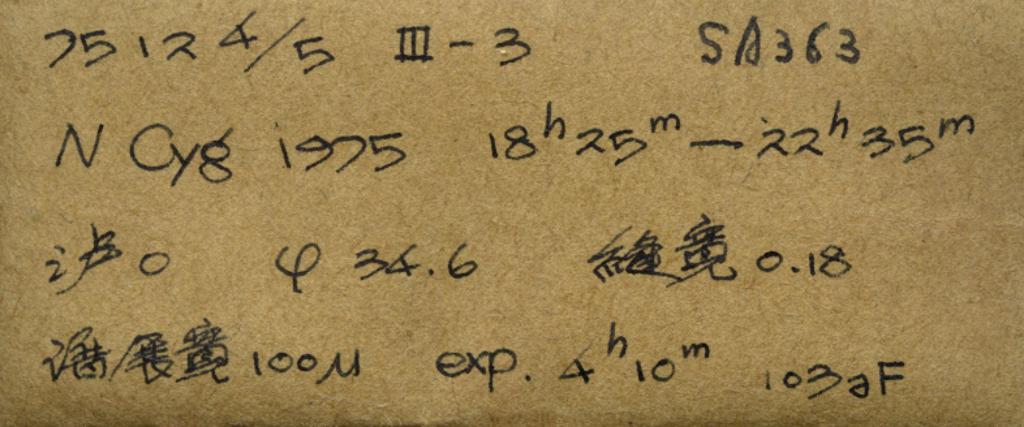 75 12 4/5 III - 3 SA363
N Cyg 1975 18h25m — 22h35m
沪0 φ 34.6 缝宽 0.18
谱展宽 100μ exp. 4h10m 103aF